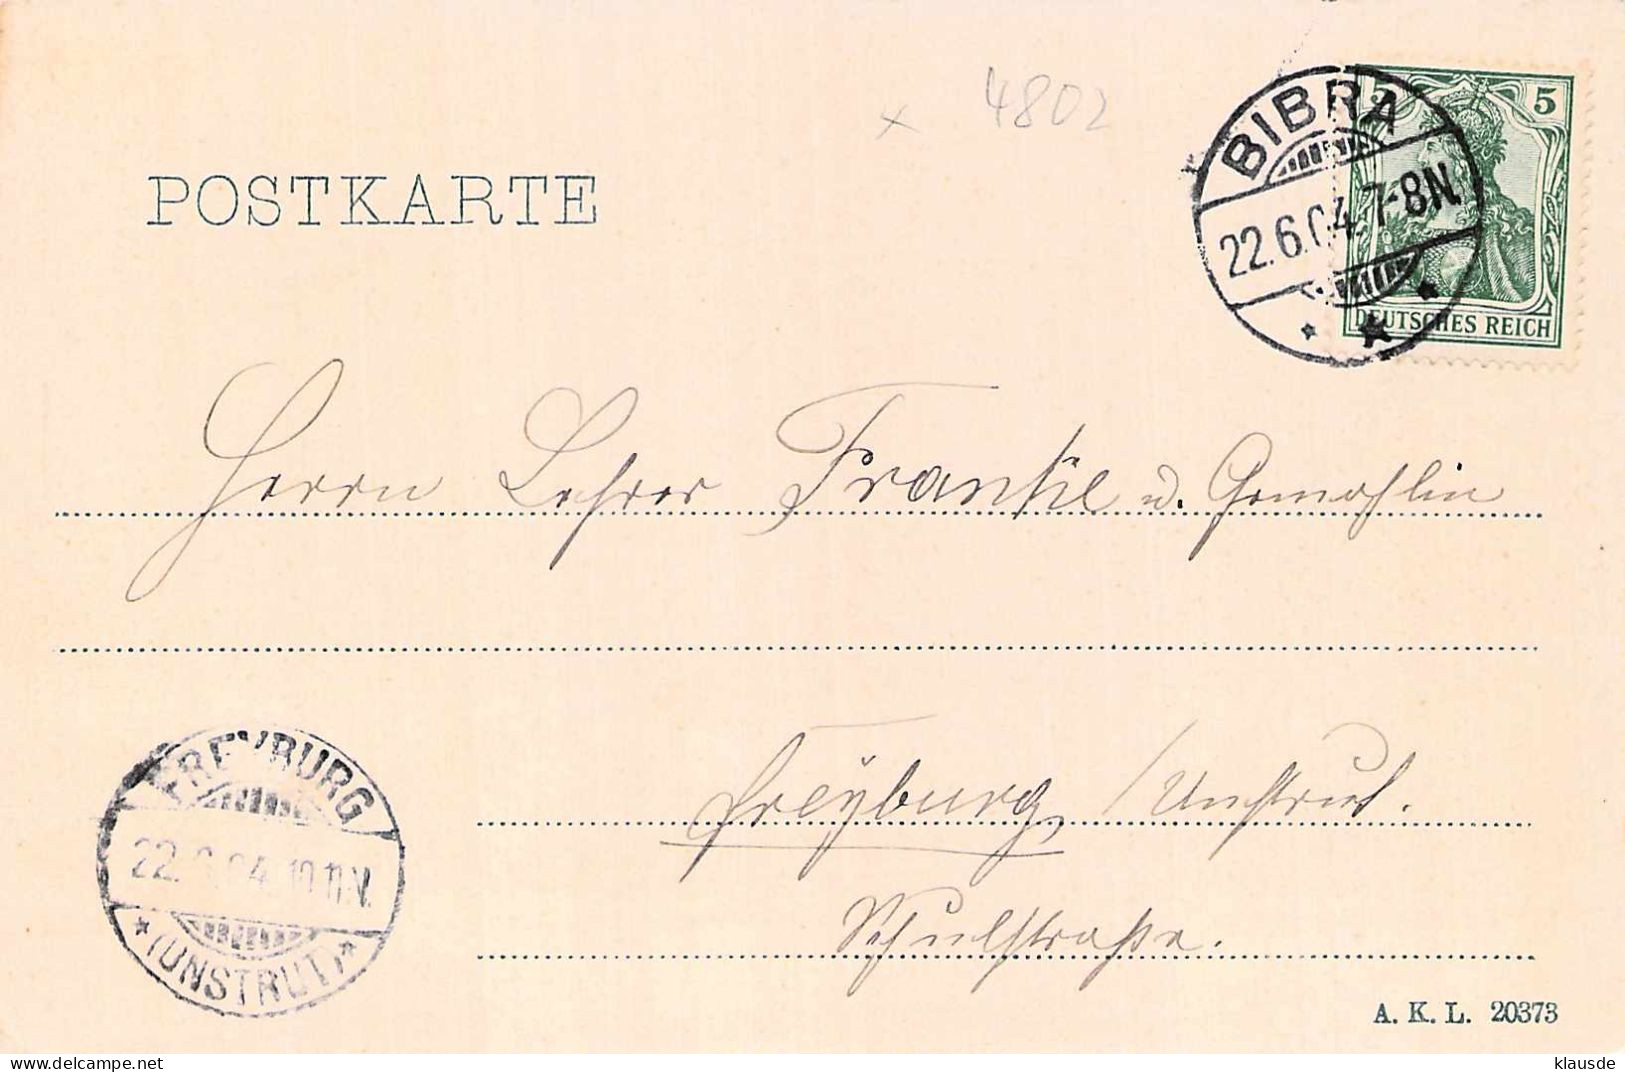 × 4802
BIBRA
22.6.04. 7-8N.
5 5
DEUTSCHES REICH
POSTKARTE
Herrn Lehrer Franke u. Gemahlin
Freyburg /Unstrut.
Schulstraße.
FREYBURG
22.6.04. 10-11N.
(UNSTRUT)
A. K. L. 20373
klausde